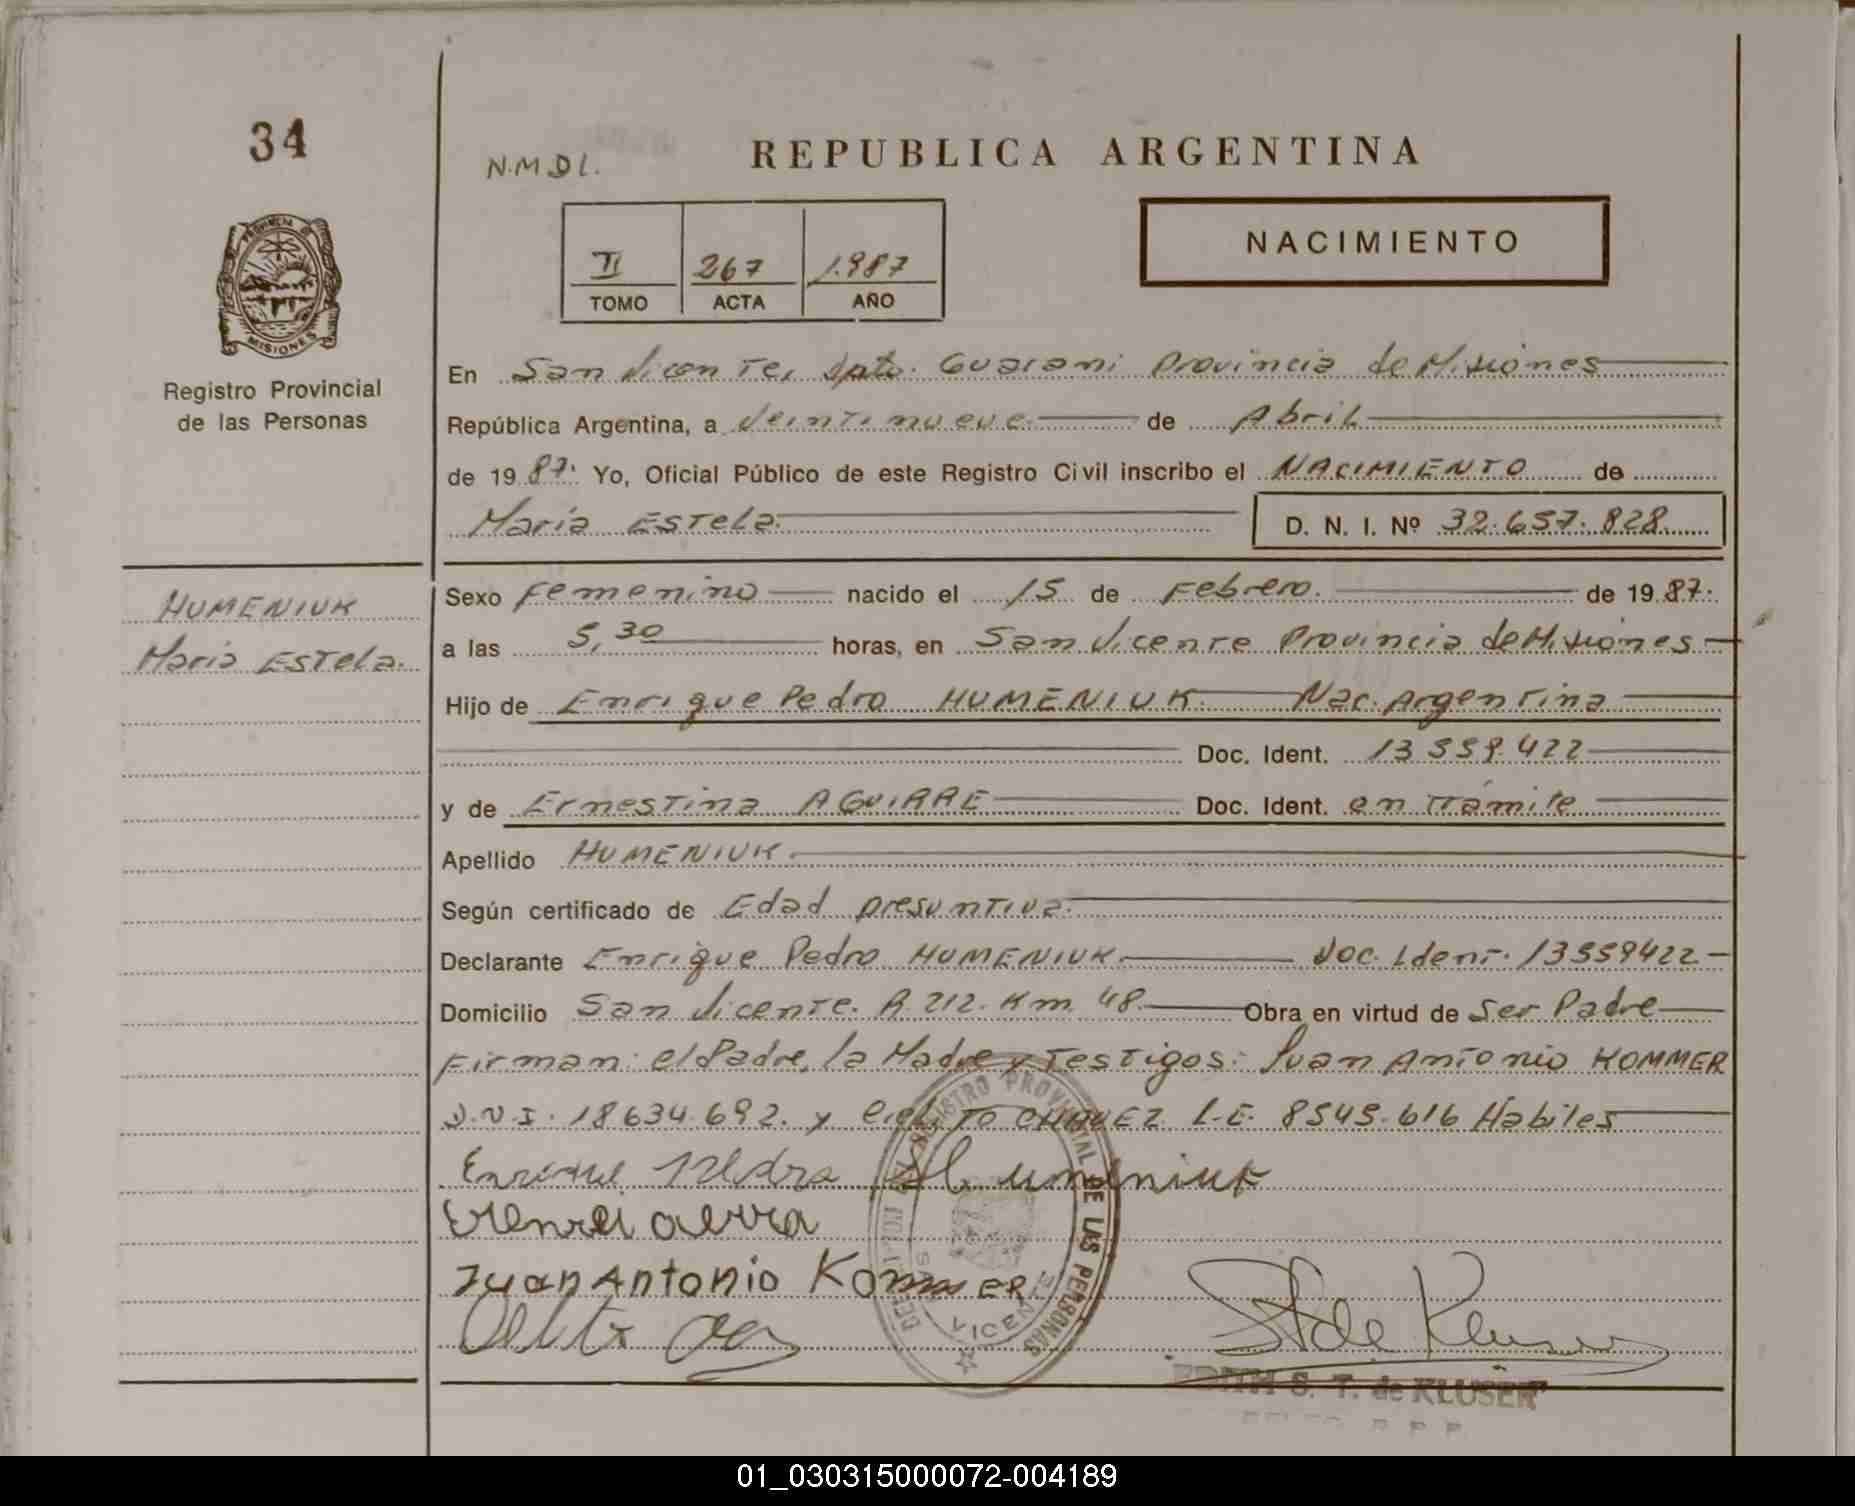 34
N.M.D.L.
REPUBLICA ARGENTINA
PROVINCIA DE
MISIONES
Registro Provincial
de las Personas
II 267 1.987
TOMO ACTA AÑO
NACIMIENTO
En San Vicente, Dpto. Guarani Provincia de Misiones
República Argentina, a Veintinueve de Abril
de 1987. Yo, Oficial Público de este Registro Civil inscribo el NACIMIENTO de
María Estela. D. N. I. Nº 32.657.828
HUMENIUK
María Estela.
Sexo Femenino nacido el 15 de Febrero. de 1987.
a las 5,30 horas, en San Vicente Provincia de Misiones
Hijo de Enrique Pedro HUMENIUK Nac. Argentina
Doc. Ident. 13 559.422
y de Ernestina AGUIRRE Doc. Ident. en Trámite
Apellido HUMENIUK.
Según certificado de Edad presuntiva.
Declarante Enrique Pedro HUMENIUK. Doc. Ident. 13559422
Domicilio San Vicente. R. 212. Km. 48. Obra en virtud de Ser Padre
Firman: el Padre, la Madre y Testigos: Juan Antonio KOMMER
D.N.I. 18634.692. y CHAVEZ L.E. 8545.616 Hábiles
Enrique Pedro Humeniuk
Juan Antonio Kommer
REGISTRO PROVINCIAL DE LAS PERSONAS
SAN VICENTE
S. T. de Kluser
EDITH S. T. de KLUSER
01_030315000072-004189